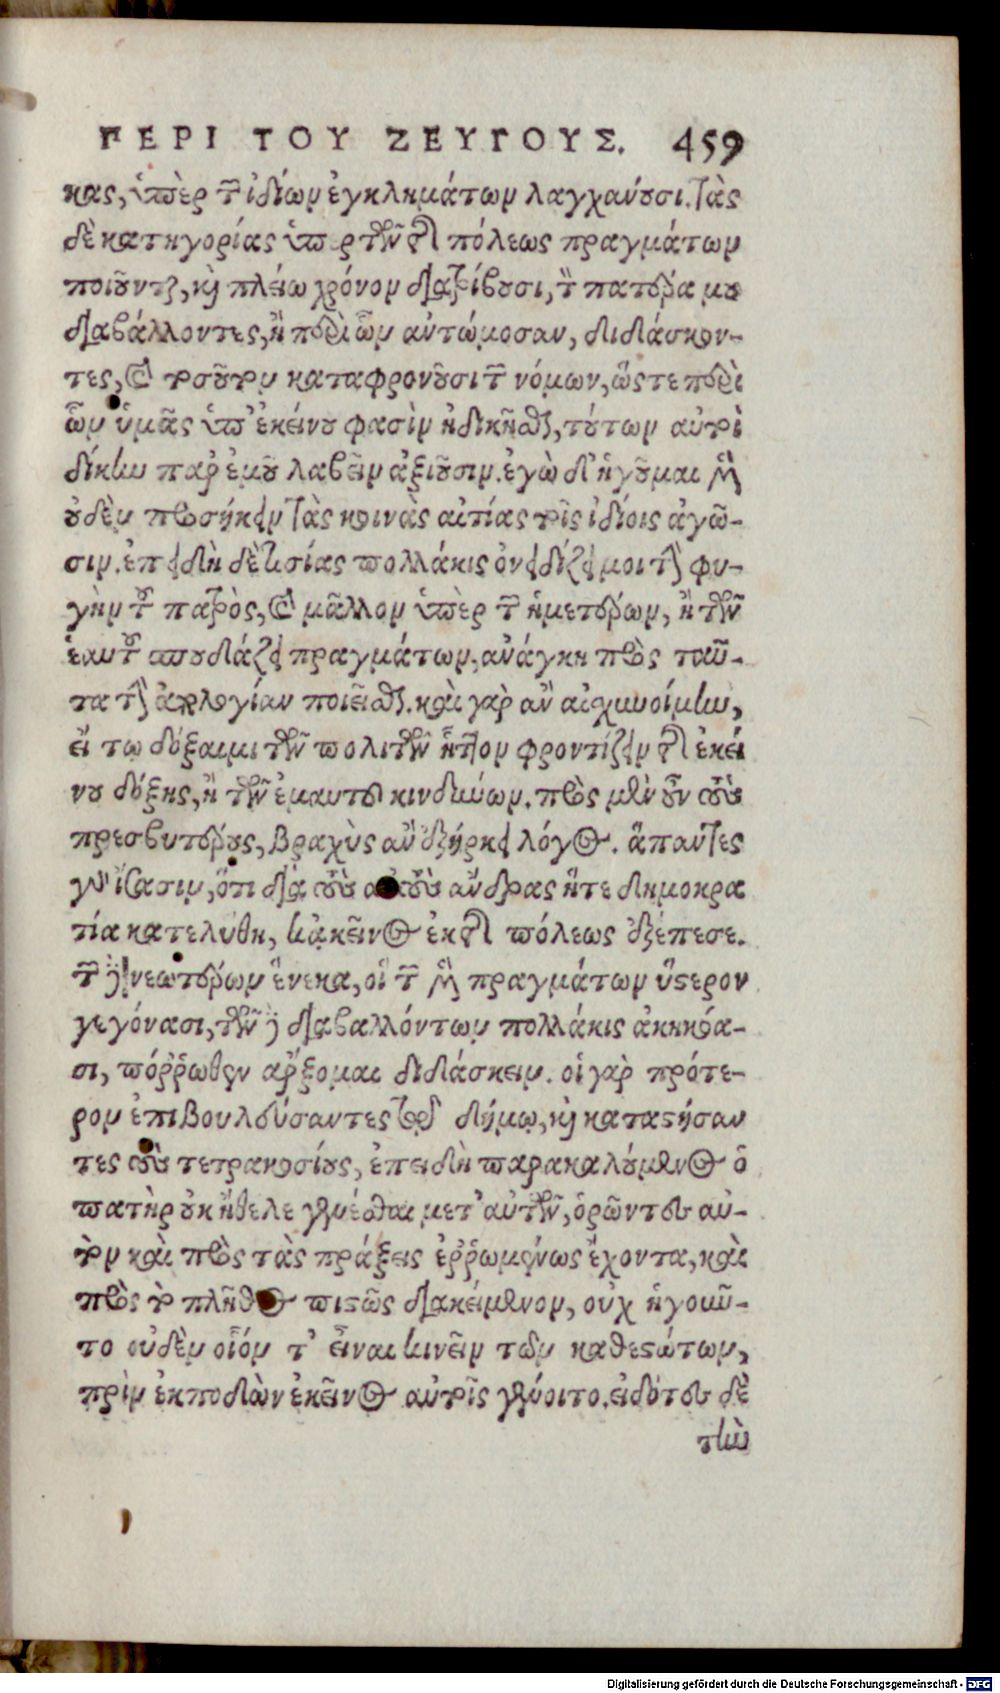 ΠΕΡΙ ΤΟΥ ΖΕΥΓΟΥΣ. 459
κας, ὑπὲρ τῶν ἰδίων ἐγκλημάτων λαγχάνουσι. τὰς
δὲ κατηγορίας ὑπὲρ τῶν τῆς πόλεως πραγμάτων
ποιοῦνται, καὶ πλείω χρόνον διατρίβουσι, τὸν πατέρα μου
διαβάλλοντες, ἢ περὶ ὧν ἀντώμοσαν, διδάσκον-
τες, καὶ τοσοῦτον καταφρονοῦσι τῶν νόμων, ὥστε περὶ
ὧν ὑμᾶς ὑπ' ἐκείνου φασὶν ἠδικῆσθαι, τούτων αὐτοὶ
δίκην παρ' ἐμοῦ λαβεῖν ἀξιοῦσιν. ἐγὼ δ' ἡγοῦμαι μὲν
οὐδὲν προσήκειν τὰς κοινὰς αἰτίας τοῖς ἰδίοις ἀγῶ-
σιν. ἐπειδὴ δὲ τισίας πολλάκις ὀνειδίζει μοι τὴν φυ-
γὴν τοῦ πατρὸς, καὶ μᾶλλον ὑπὲρ τῶν ἡμετέρων, ἢ τῶν
ἑαυτοῦ σπουδάζει πραγμάτων, ἀνάγκη πρὸς ταῦ-
τα τὴν ἀπολογίαν ποιεῖσθαι. καὶ γὰρ ἂν αἰσχυνοίμην,
εἴ τῳ δόξαιμι τῶν πολιτῶν ἧττον φροντίζειν τῆς ἐκεί
νου δόξης, ἢ τῶν ἐμαυτοῦ κινδύνων. πρὸς μὲν οὖν τοὺς
πρεσβυτέρους, βραχὺς ἂν ἐξήρκει λόγος. ἅπαντες
γὰρ ἴσασιν, ὅτι διὰ τοὺς αὐτοὺς ἄνδρας ἥτε δημοκρα
τία κατελύθη, κἀκεῖνος ἐκ τῆς πόλεως ἐξέπεσε.
τῶν δὲ νεωτέρων ἕνεκα, οἳ τῶν μὲν πραγμάτων ὕστερον
γεγόνασι, τῶν δὲ διαβαλλόντων πολλάκις ἀκηκόα-
σι, πόρῤῥωθεν ἄρξομαι διδάσκειν. οἱ γὰρ πρότε-
ρον ἐπιβουλεύσαντες τῷ δήμῳ, καὶ καταστήσαν
τες τοὺς τετρακοσίους, ἐπειδὴ παρακαλούμενος ὁ
πατὴρ οὐκ ἤθελε γενέσθαι μετ' αὐτῶν, ὁρῶντες αὐ-
τὸν καὶ πρὸς τὰς πράξεις ἐῤῥωμένως ἔχοντα, καὶ
πρὸς τὸ πλῆθος πιστῶς διακείμενον, οὐχ ἡγοῦν-
το οὐδὲν οἷόν τ' εἶναι κινεῖν τῶν καθεστώτων,
πρὶν ἐκποδὼν ἐκεῖνος αὐτοῖς γένοιτο. εἰδότες δὲ
τὴν
Digitalisierung gefördert durch die Deutsche Forschungsgemeinschaft - DFG